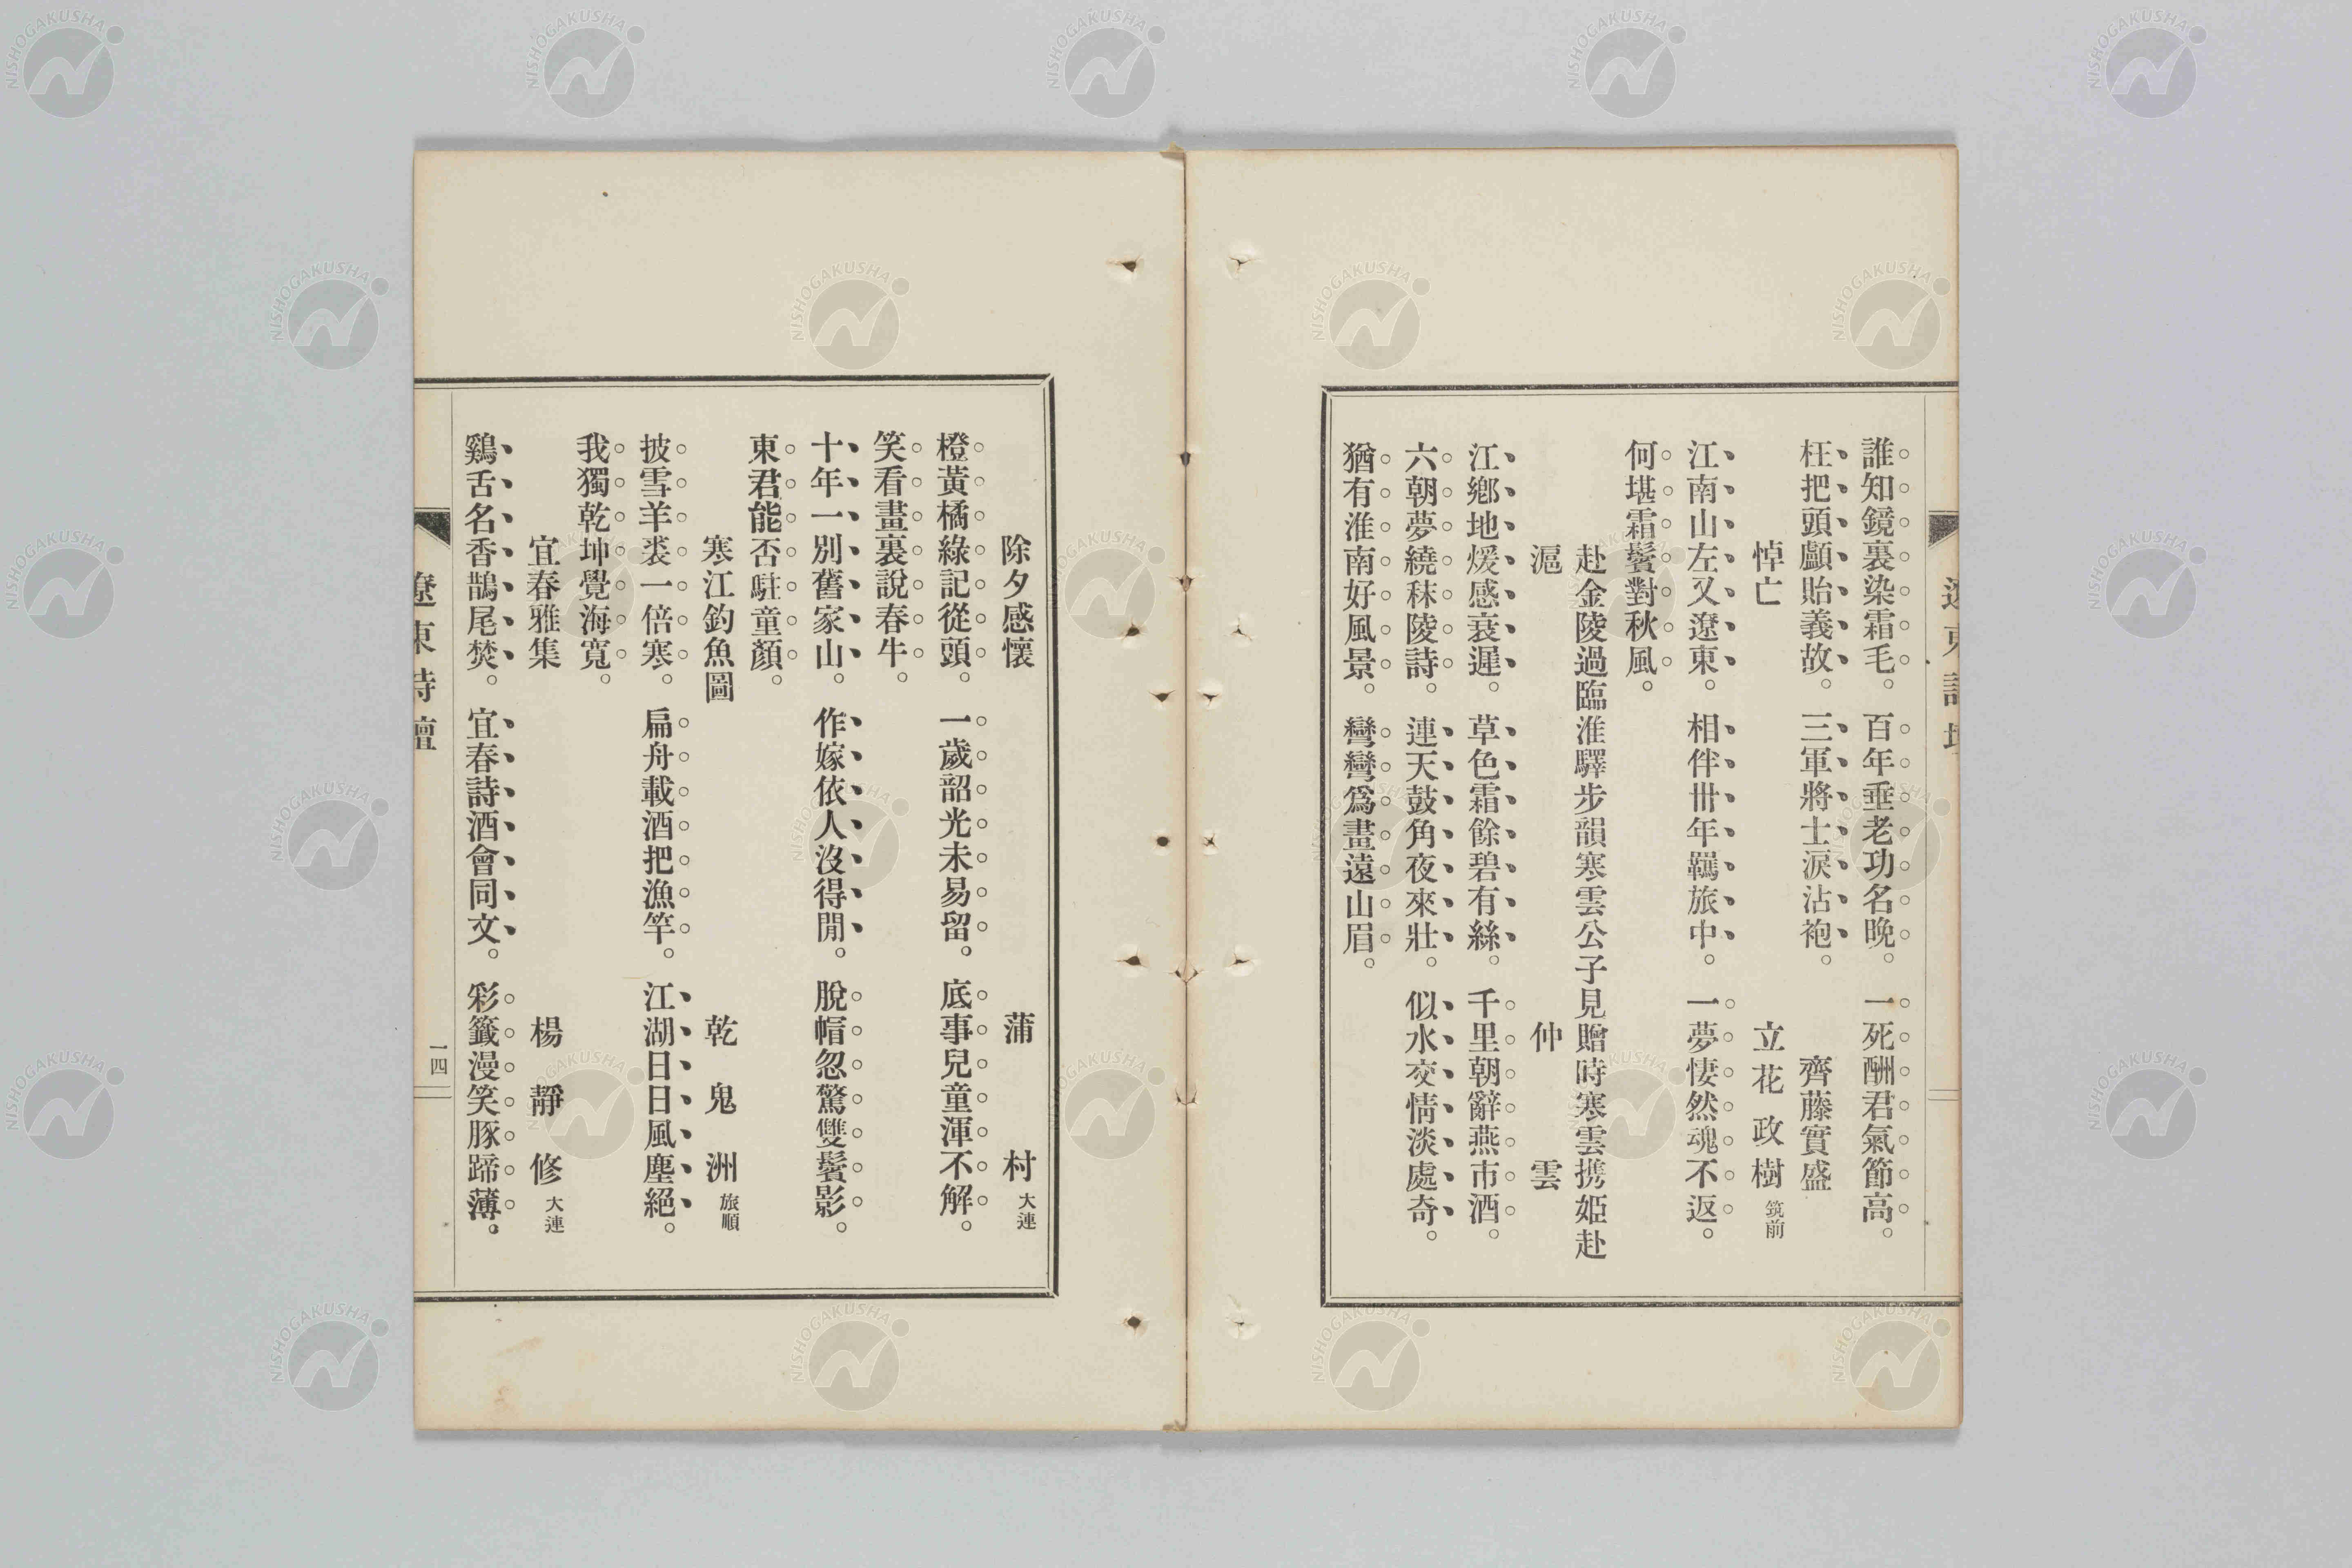 誰知鏡裏染霜毛。百年垂老功名晩。一死酬君氣節高。
枉把頭顱貽義故。三軍將士淚沾袍。齊藤實盛
悼亡 立花政樹 筑前
江南山左又遼東。相伴卅年羈旅中。一夢悽然魂不返。
何堪霜鬢對秋風。
赴金陵過臨淮驛步韻寒雲公子見贈時寒雲携姬赴
滬 仲雲
江鄕地煖感衰遲。草色霜餘碧有絲。千里朝辭燕市酒。
六朝夢繞秣陵詩。連天鼓角夜來壯。似水交情淡處奇。
猶有淮南好風景。彎彎爲畫遠山眉。
除夕感懷 蒲村 大連
橙黃橘綠記從頭。一歲韶光未易留。底事兒童渾不解。
笑看畫裏說春牛。
十年一別舊家山。作嫁依人沒得閒。脫帽忽驚雙鬢影。
東君能否駐童顏。
寒江釣魚圖 乾鬼洲 旅順
披雪羊裘一倍寒。扁舟載酒把漁竿。江湖日日風塵絕。
我獨乾坤覺海寬。
宜春雅集 楊靜修 大連
鷄舌名香鵲尾焚。宜春詩酒會同文。彩籤漫笑豚蹄薄。
遼東詩壇
一四
NISHOGAKUSHA